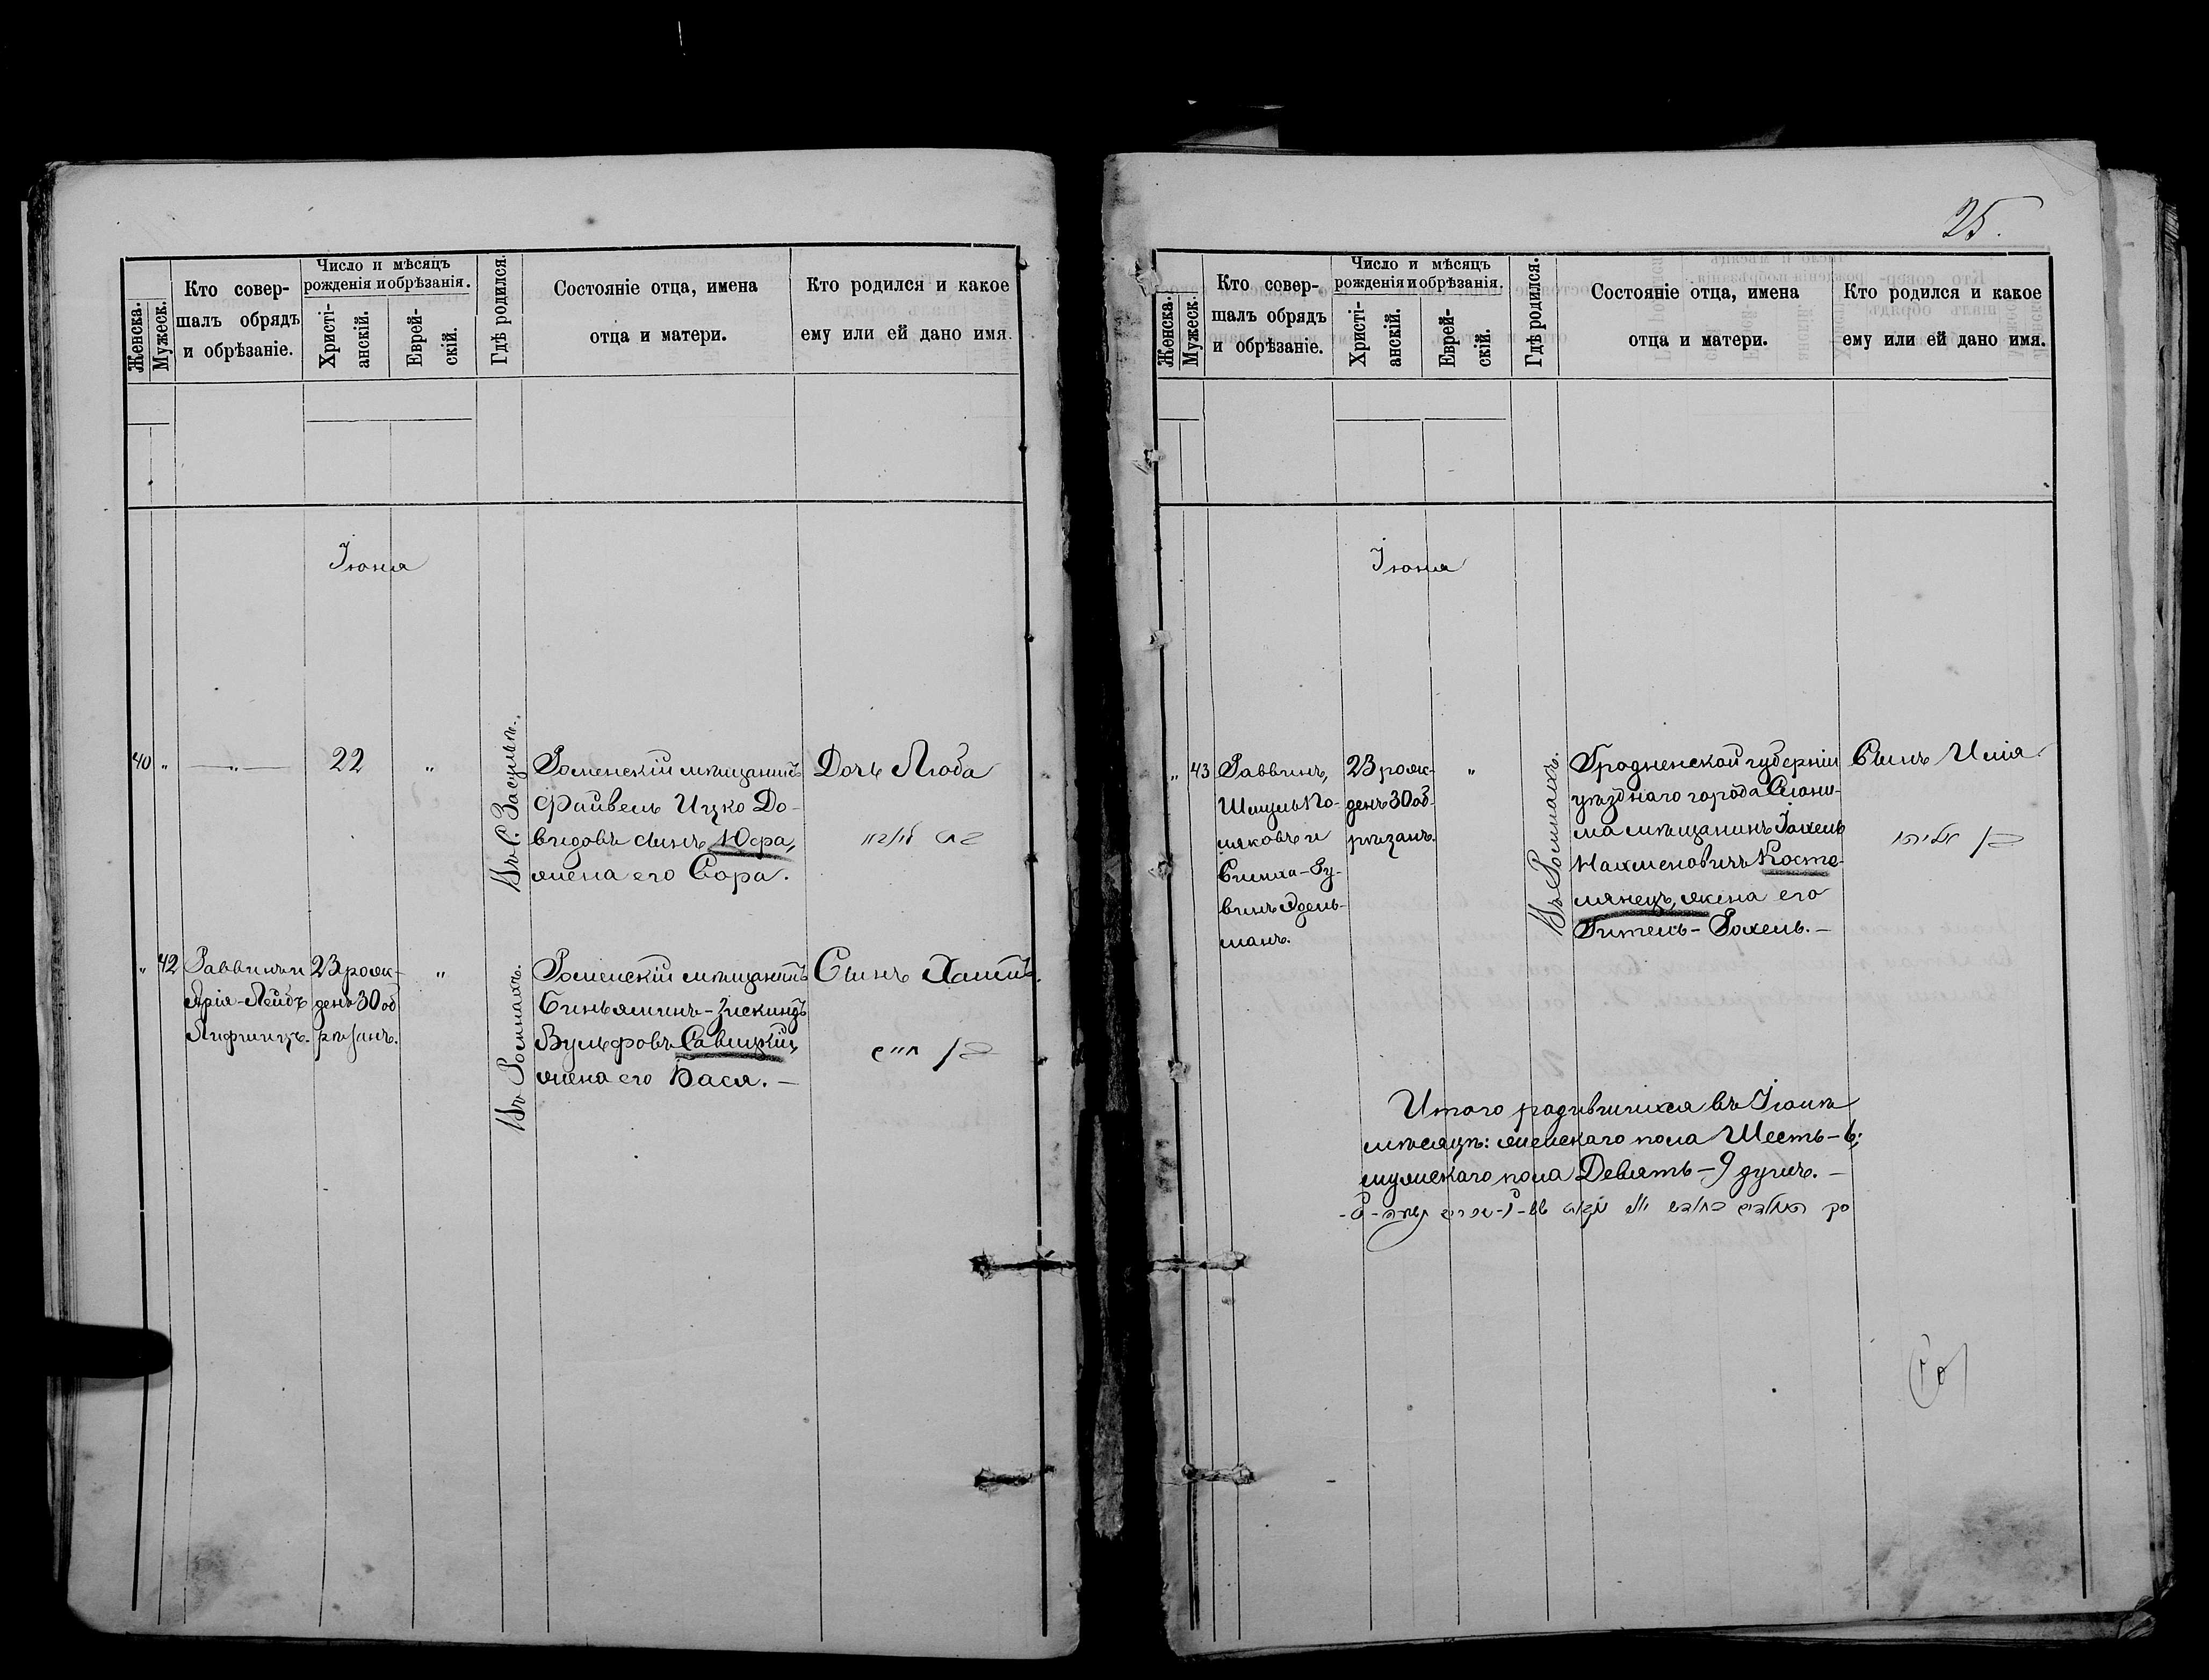 Женска.
Мужеск.
Кто совер-
шалъ обрядъ
и обрѣзаніе.
Число и мѣсяцъ
рожденія и обрѣзанія.
Христі-
анскій.
Еврей-
скій.
Гдѣ родился.
Состояніе отца, имена
отца и матери.
Кто родился и какое
ему или ей дано имя.
Іюня
40 „ —„— 22 „
Въ С. Засульѣ.
Роменскій мѣщанинъ
Файвель Ицко До-
видовъ сынъ Юфа,
жена его Сора.
Дочь Люба
בת
„ 42
Раввинъ и
Арія-Лейбъ
Лифшицъ.
23 рож-
денъ 30 об
рѣзанъ.
„
Въ Ромнахъ.
Роменскій мѣщанинъ
Биньяминъ-Зискиндъ
Вульфовъ Савицкій,
жена его Бася. —
Сынъ Хаимъ.
בן חיים
25.
Женска.
Мужеск.
Кто совер-
шалъ обрядъ
и обрѣзаніе.
Число и мѣсяцъ
рожденія и обрѣзанія.
Христі-
анскій.
Еврей-
скій.
Гдѣ родился.
Состояніе отца, имена
отца и матери.
Кто родился и какое
ему или ей дано имя.
Іюня
„ 43
Раввинъ,
Шмуль По-
ляковъ и
Симха-Ру-
винъ Эдель-
манъ.
23 рож-
денъ 30 об-
рѣзанъ.
„
Въ Ромнахъ.
Гродненской губерніи
уѣзднаго города Слони-
ма мѣщанинъ
Нахменовичъ Косто-
мянецъ, жена его
Гитель-Рохель. —
Сынъ Илія
בן אליהו
Итого родившихся въ Іюнѣ
мѣсяцѣ: женскаго пола Шесть - 6;
мужскаго пола Девять - 9 душъ. —
סך הנולדים בחודש